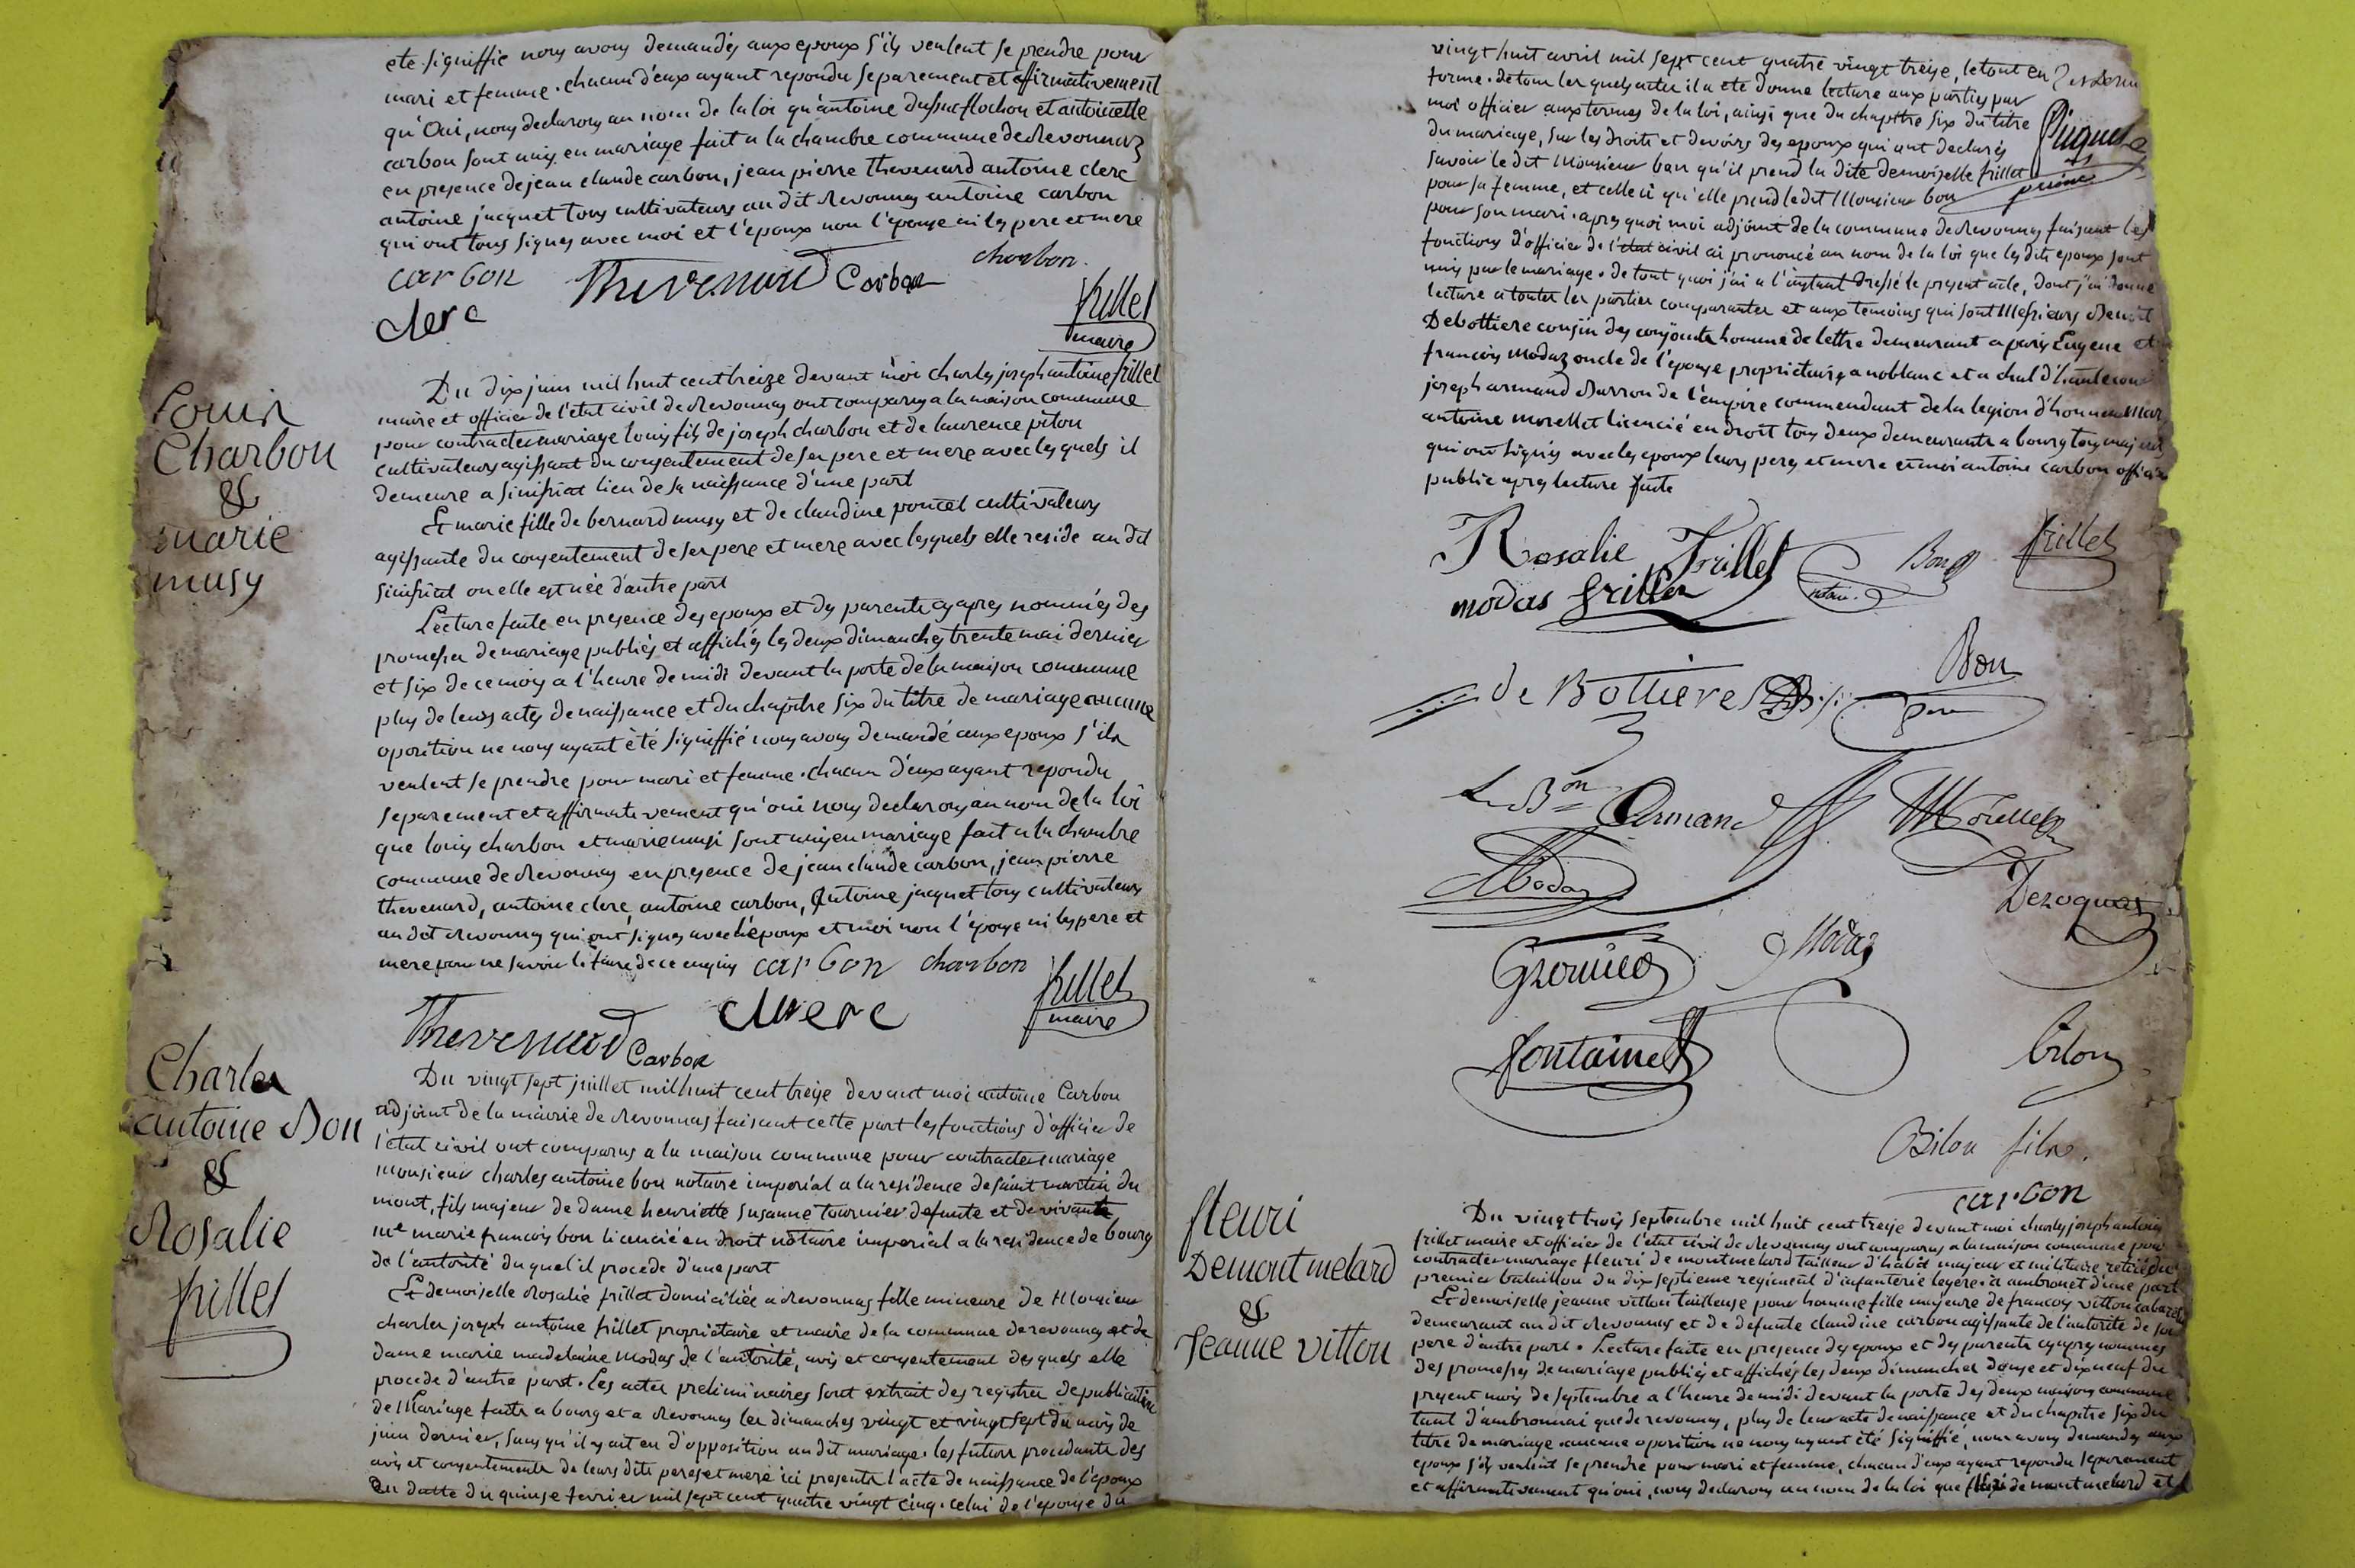 eté signiffie nous avons demandés aux epoux s'ils veulent se prendre pour
mari et femme. chacun d'eux ayant repondu separement et affirmativement
qu'Oui, nous declarons au nom de la loi qu'antoine dussuc flochon et antoinette
carbon sont unis en mariage fait a la chambre commune de Revonnaz
en presence de jean claude carbon, jean pierre thevenard antoine clerc
antoine jacquet tous cultivateurs au dit Revonnas antoine carbon
qui ont tous signés avec moi et l'epoux non l'epouse ni les pere et mere
carbon Thevenard Carbon charbon.
clerc frillet
maire
Louis
Charbon
&
marie
musy
Du dix juin mil huit cent treize devant moi charles joseph antoine frillet
maire et officier de l'etat civil de Revonnas ont comparus a la maison commune
pour contracter mariage louis fils de joseph charbon et de laurence piton
cultivateurs agissant du consentement de ses pere et mere avec lesquels il
demeure a simfriat lieu de sa naissance d'une part
Et marie fille de bernard musy et de claudine poncet cultivateurs
agissante du consentement de ses pere et mere avec lesquels elle reside au dit
simfriat ou elle est née d'autre part
Lecture faite en presence des epoux et des parents cy apres nommés des
promesses de mariage publiés et affichés les deux dimanches trente mai dernier
et six de ce mois a l'heure de midi devant la porte de la maison commune
plus de leurs actes de naissance et du chapitre six du titre de mariage aucune
oposition ne nous ayant été signiffié nous avons demandé aux epoux s'ils
veulent se prendre pour mari et femme. chacun d'eux ayant repondu
separement et affirmativement qu'oui nous declarons au nom de la loi
que louis charbon et marie musi sont unis en mariage fait a la chambre
commune de Revonnas en presence de jean claude carbon, jean pierre
thevenard, antoine clerc antoine carbon, Antoine jacquet tous cultivateurs
au dit Revonnas qui ont signés avec l'epoux et moi non l'epouse ni les pere et
mere pour ne savoir le faire de ce enquis carbon charbon
frillet
maire
Thevenard Carbon clerc
Charles
antoine Bon
&
Rosalie
frillet
Du vingt sept juillet mil huit cent treize devant moi antoine Carbon
adjoint de la mairie de Revonnas faisant cette part les fonctions d'officier de
l'état civil ont comparus a la maison commune pour contracter mariage
monsieur charles antoine bon notaire imperial a la residence de saint martin du
mont, fils majeur de dame henriette susanne tournier defunte et de vivant
me marie francois bon licencié en droit notaire imperial a la residence de bourg
de l'autorité duquel il procede d'une part
Et demoiselle Rosalie frillet domiciliée a Revonnas fille mineure de Monsieur
charles joseph antoine frillet propriétaire et maire de la commune de revonnas et de
dame marie madelaine Modas de l'autorité, avis et consentement desquels elle
procede d'autre part. Les actes preliminaires sont extrait des registres de publication
de Mariage faits a bourg et a Revonnas les dimanches vingt et vingt sept du mois de
juin dernier, sans qu'il y ait eu d'opposition au dit mariage. les futurs procedants des
avis et consentements de leurs dits peres et mere ici presents l'acte de naissance de l'epoux
En datte du quinze fevrier mil sept cent quatre vingt cinq. celui de l'epouse du
vingt huit avril mil sept cent quatre vingt treize, le tout en
forme. de tous lesquels actes il a eté donné lecture aux parties par
moi officier aux termes de la loi, ainsi que du chapitre six du titre
du mariage, sur les droits et devoirs des epoux qui ont declarés
savoir le dit Monsieur bon qu'il prend la dite demoiselle frillet
pour sa femme, et celle ci qu'elle prend le dit Monsieur bon
pour son mari. apres quoi moi adjoint de la commune de Revonnas faisant les
fonctions d'officier de l'etat civil ai prononcé au nom de la loi que les dits epoux sont
unis par le mariage. de tout quoi j'ai a l'instant dressé le present acte, dont j'ai donné
lecture a toutes les parties comparantes et aux temoins qui sont Messieurs Benoit
Debottiere cousin des conjoints homme de lettre demeurant a paris Eugene et
francois Modaz oncle de l'epouse propriétaires a noblanc et a
joseph armand Barron de l'empire commendant de la legion d'honneur
antoine morellet licencié en droit tous deux demeurants a bourg tous majeurs
qui ont signés avec les epoux leurs peres et mere et moi antoine carbon officier
public apres lecture faite
Rosalie Frillet Bon frillet
modas frillet notaire
de Bottiere Bon
pere
Le Bon Armand Morellet
Modas Dezoquas
Modaz
fontaine Bilon
Bilon fils.
carbon
fleuri
Demontmelard
&
Jeanne vitton
Du vingt trois septembre mil huit cent treize devant moi charles joseph antoine
frillet maire et officier de l'etat civil de Revonnas ont comparus a la maison commune pour
contracter mariage fleuri de montmelard tailleur d'habit majeur et militaire retiré du
premier bataillon du dix septieme regiment d'infanterie legere. a ambronet d'une part
Et demoiselle jeanne vitton tailleuse pour homme fille majeure de francois vitton
demeurant au dit Revonnas et de defunte claudine carbon agissante de l'autorité de son
pere d'autre part. Lecture faite en presence des epoux et des parents cy apres nommés
des promesses de mariage publiés et affichés les deux dimanches douze et dixneuf du
present mois de septembre a l'heure de midi devant la porte des deux maisons commune
tant d'ambronnai que de revonnas, plus de leur acte de naissance et du chapitre six du
titre de mariage. aucune oposition ne nous ayant été signiffié, nous avons demandés aux
epoux s'ils veulent se prendre pour mari et femme, chacun d'eux ayant repondu separement
et affirmativement qu'oui, nous declarons au nom de la loi que fleuri de montmelard et